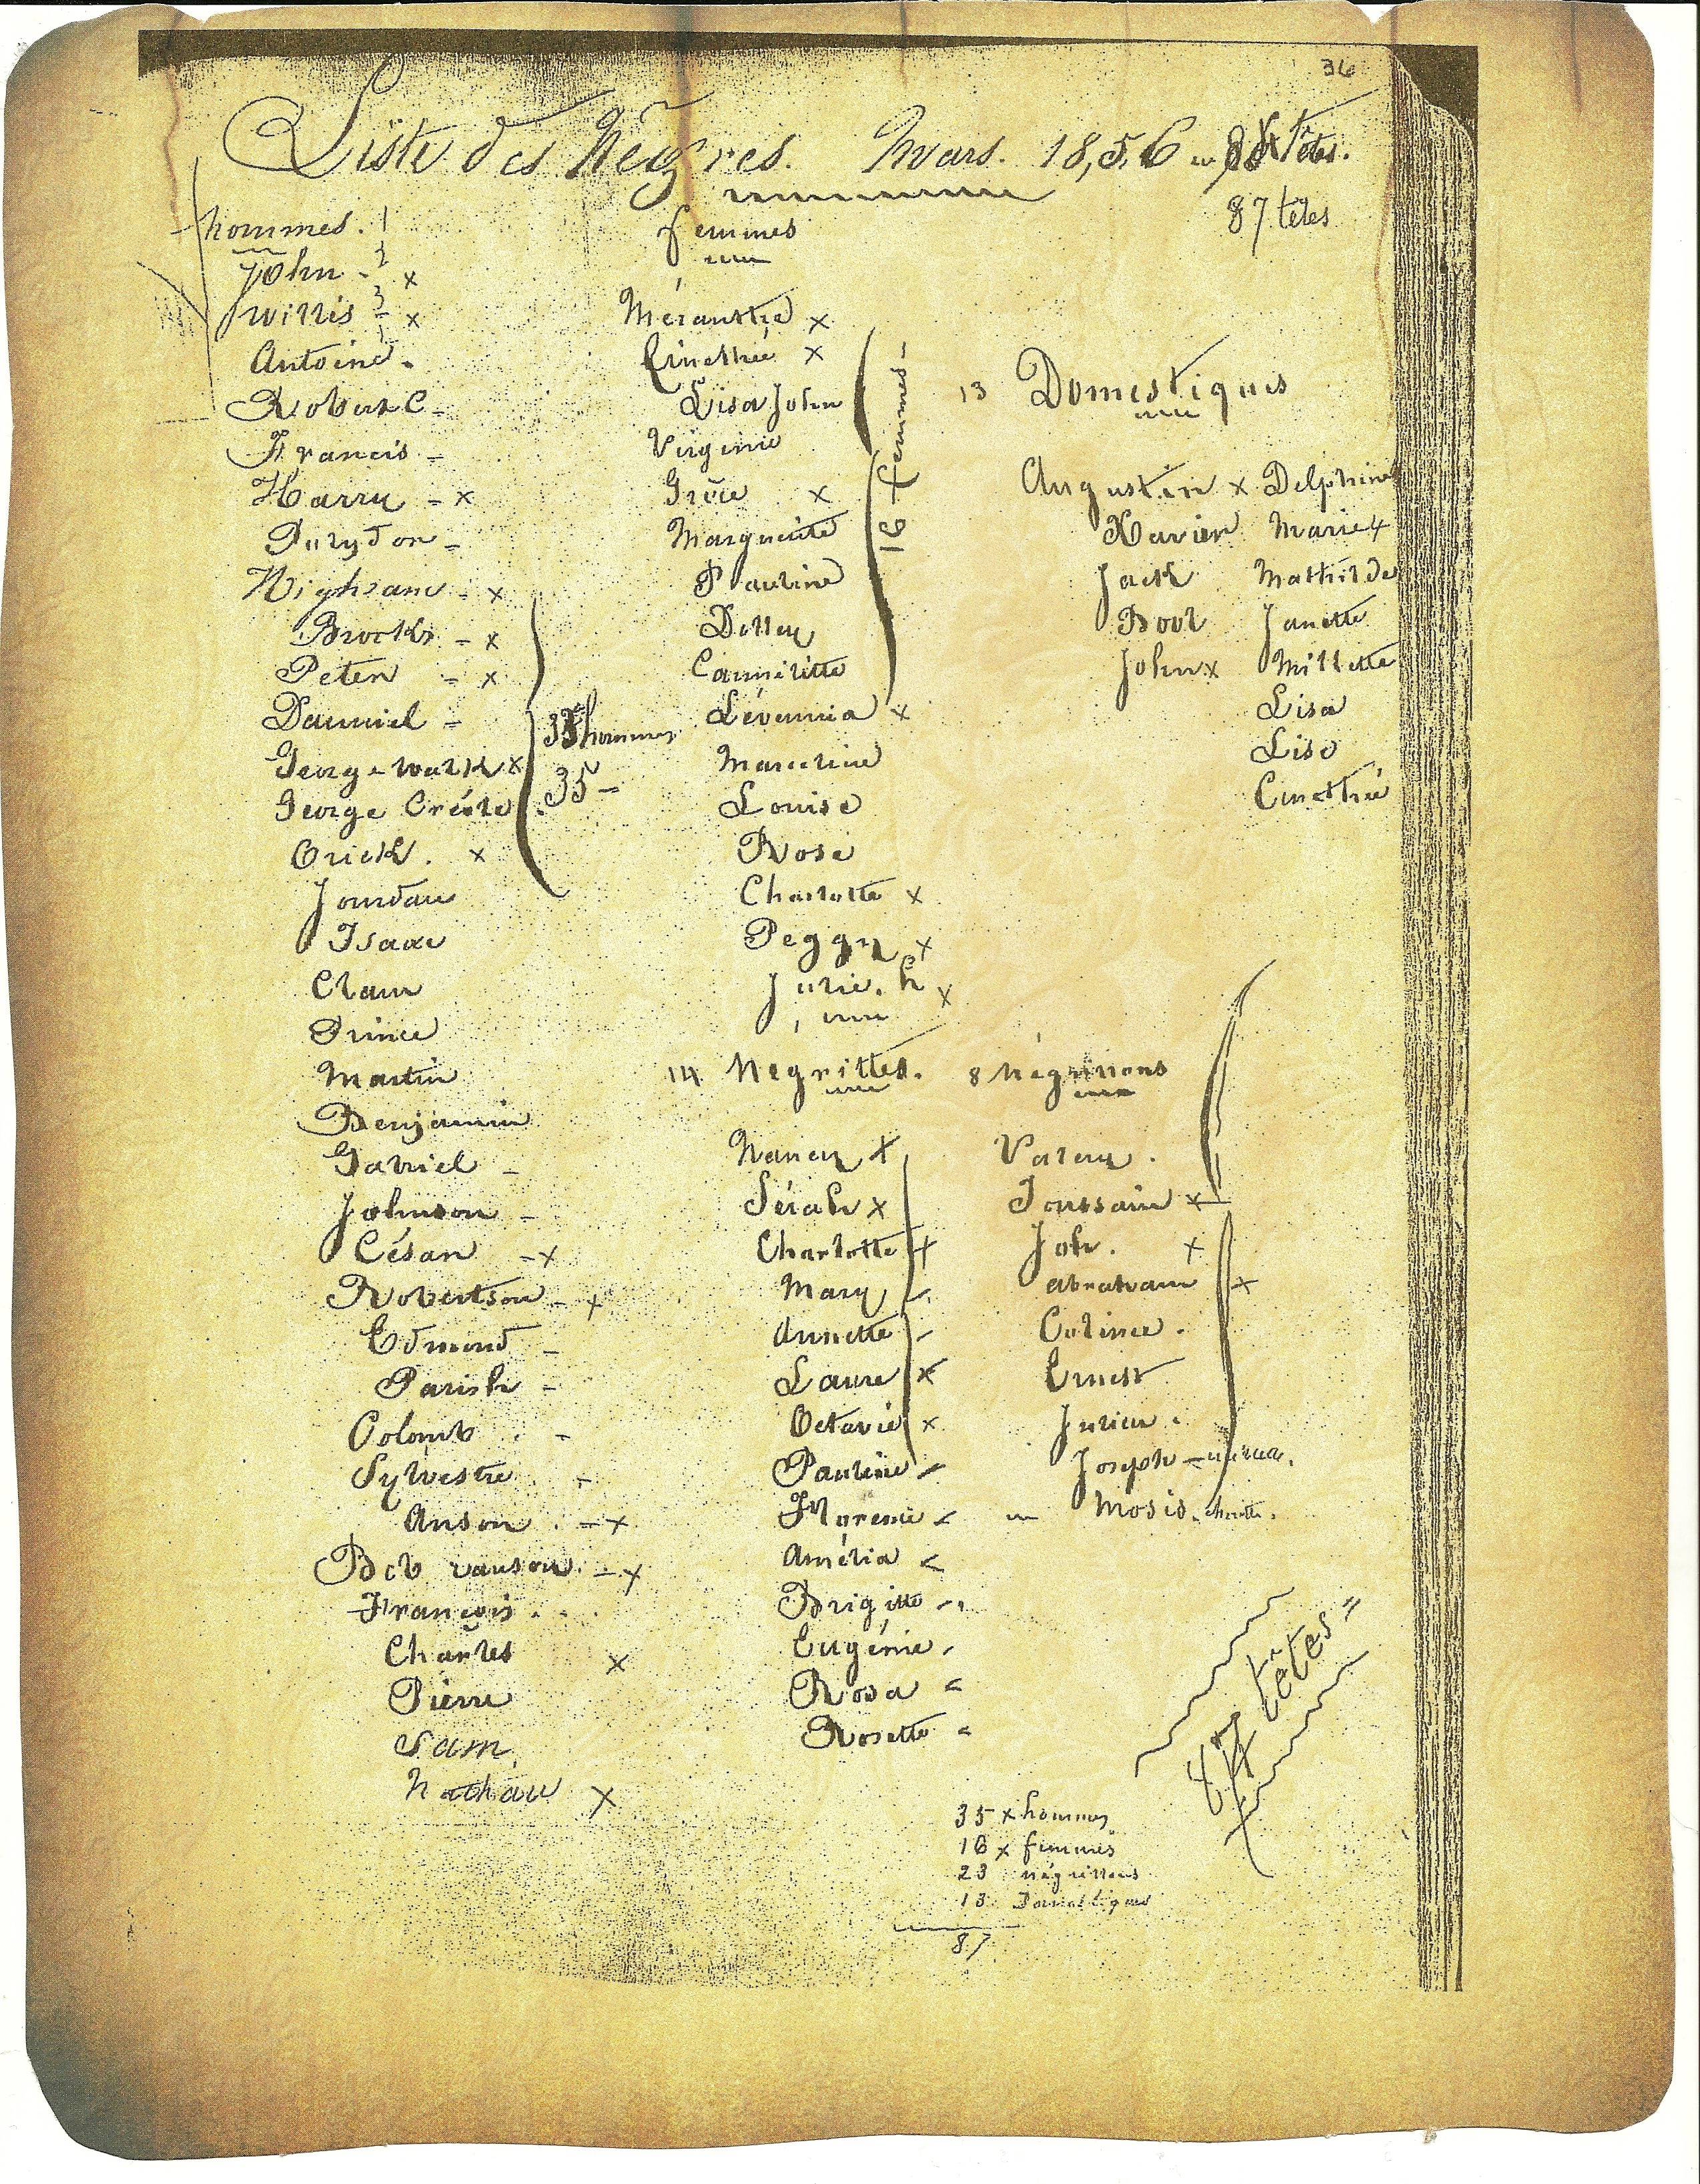 36
Liste des Nègres. Mars. 18,5,6 Têtes.
87 têtes
hommes. 1
John - 2 x
Willis - 3 x
Antoine -
Robert C -
Francis -
Harry - x
-
- x
Brooks - x
Peter - x
Danniel -
George Walk x
George Créole .
Orick . x
Jourdan
Isaac
Clam
Prince
Martin
Benjamin
Gabriel -
Johnson -
César - x
Robertson - x
Edmond -
Parish -
Colomb . -
Sylvestre . -
Anson . - x
Bob ranson . - x
François . .
Charles x
Pierre
Sam
Nathan x
hommes
35 -
femmes
x
Cinethée x
Lisa John
Virginie
Grèce x
Marguerite
Pauline
Dolley
Cannélitte
Lévennia x
Marceline
Louise
Rose
Charlotte x
Peggy x
Julie. h x
16 femmes -
13 Domestiques
Augustin x Delphine
Xavier Marie x
Jack Mathilde
Bool Janette
John x Millette
Lisa
Lise
Cinethée
14 Negrittes.
Nancy x
Sérah x
Charlotte x
Mary -
Annette -
Laure x
Octavie x
Pauline -
Florence -
Amélia -
Brigitte -
Eugénie -
Rosa -
Rosette -
8 négrillons
Valery .
Toussain x
Job . x
Abraham x
Colince .
Ernest
Julien .
Joseph -
Mosis.
87 têtes =
35 x hommes
16 x femmes
23 négrillons
13 Domestiques
87